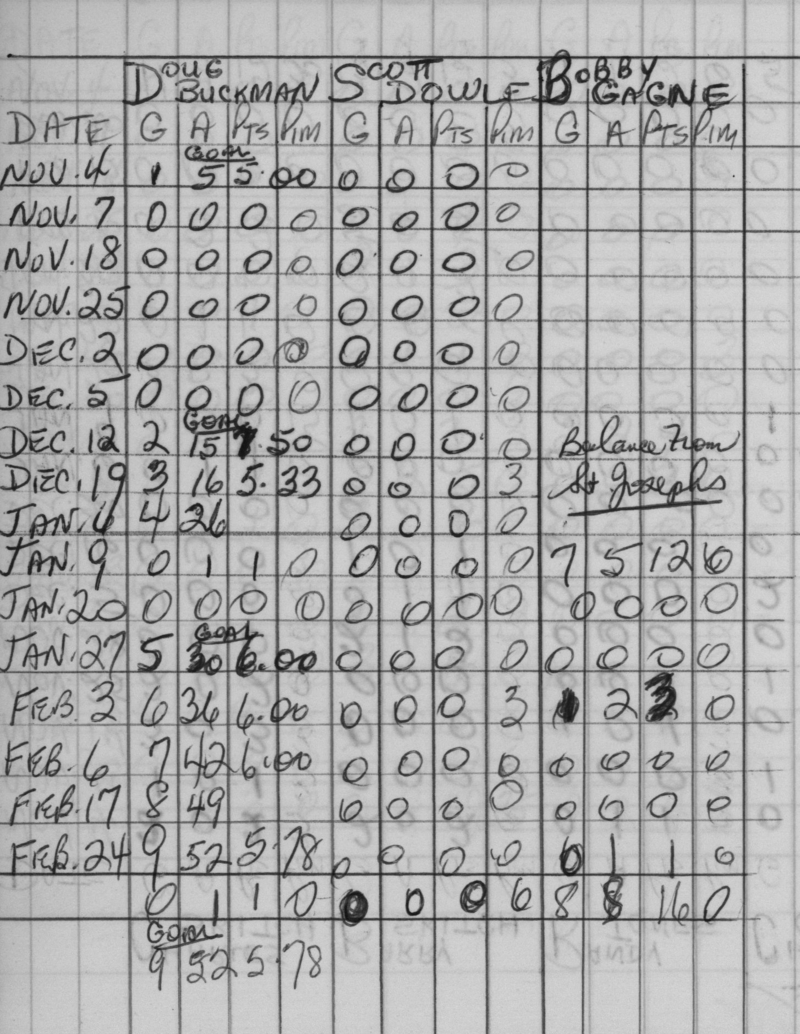 DOUG SCOTT BOBBY
BUCKMAN DOWLE GAGINE
DATE G A PTS PIM G A PTS PIM G A PTS PIM
GOAL
NOV. 4 1 5 5.00 0 0 0 0
NOV. 7 0 0 0 0 0 0 0 0
NOV. 18 0 0 0 0 0 0 0 0
NOV. 25 0 0 0 0 0 0 0 0
DEC. 2 0 0 0 0 0 0 0 0
DEC. 5 0 0 0 0 0 0 0 0
GOAL
DEC. 12 2 15 7.50 0 0 0 0 Balance From
DEC. 19 3 16 5.33 0 0 0 3 St Josephs
JAN. 4 26 0 0 0 0
JAN. 9 0 1 1 0 0 0 0 0 7 5 12 6
JAN. 20 0 0 0 0 0 0 0 0 0 0 0 0
GOAL
JAN. 27 5 30 6.00 0 0 0 0 0 0 0 0
FEB. 3 6 36 6.00 0 0 0 3 1 2 3 0
FEB. 6 7 42 6.00 0 0 0 0 0 0 0 0
FEB. 17 8 49 0 0 0 0 0 0 0 0
FEB. 24 9 52 5.78 0 0 0 0 0 1 1 0
0 1 1 0 0 0 0 6 8 8 16 0
GOAL
9 52 5.78